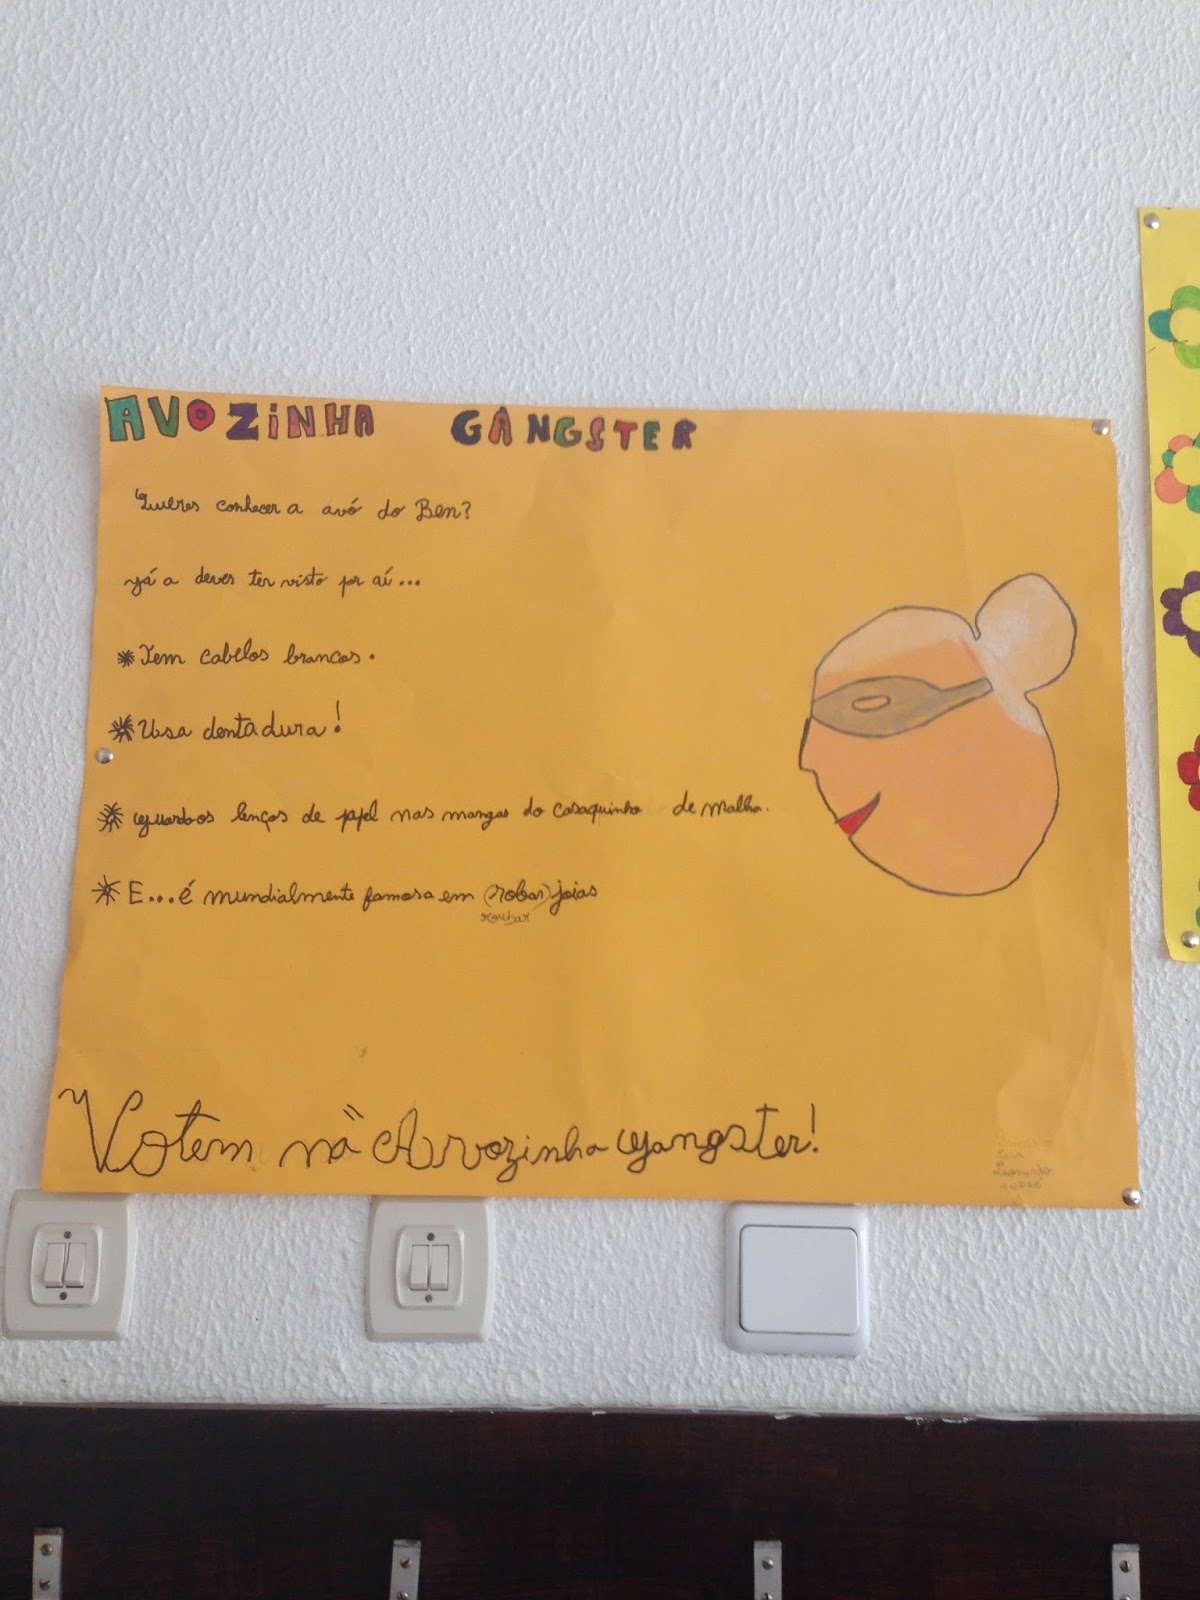 AVOZINHA GANGSTER
Queres conhecer a avó do Ben?
Já a deves ter visto por aí...
* Tem cabelos brancos.
* Usa dentadura!
* Guarda os lenços de papel nas mangas do casaquinho de malha.
* E...é mundialmente famosa em (robar) joias
roubar
Votem na "Avozinha Gangster!
Sara
Leonardo